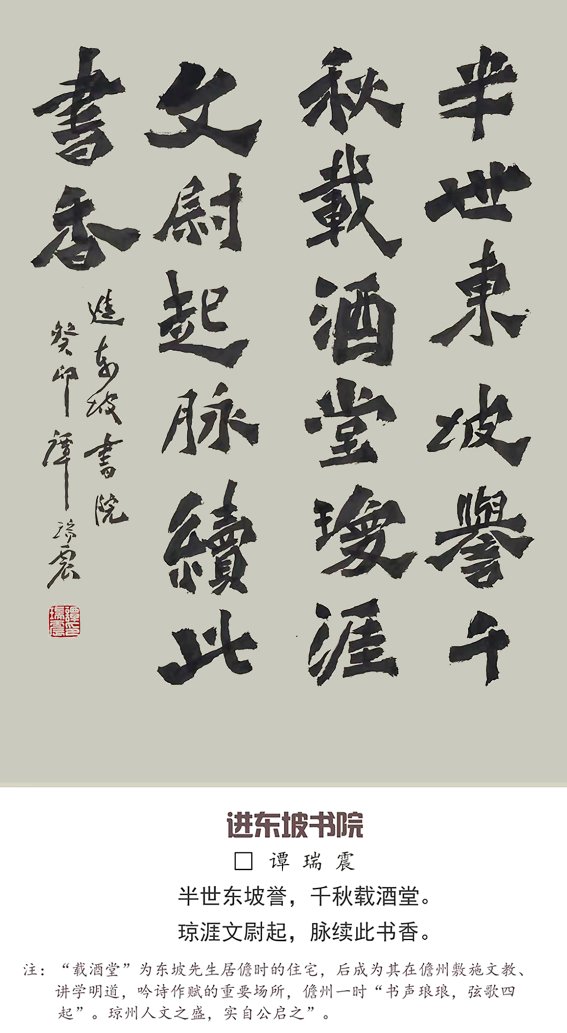 半世東坡譽千
秋載酒堂瓊涯
文尉起脉續此
書香
進東坡書院
癸卯譚瑞震
进东坡书院
□ 谭瑞震
半世东坡誉，千秋载酒堂。
琼涯文尉起，脉续此书香。
注：“载酒堂”为东坡先生居儋时的住宅，后成为其在儋州敷施文教、
讲学明道，吟诗作赋的重要场所，儋州一时“书声琅琅，弦歌四
起”。琼州人文之盛，实自公启之”。